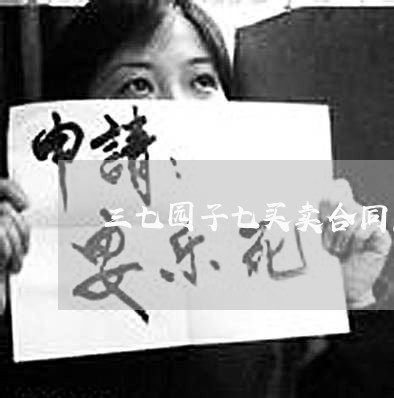 申請：
三七园子七买卖合同
安乐死